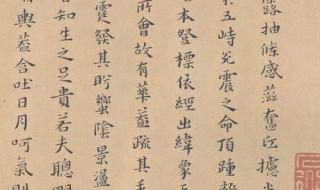 露抽條感滋奮江據
五峙兗震之命頂踵
本登標依經出緯象
所會故有華蓋疏其
霆發其貯蠁陰景盪
知生之足貴若夫聰
輿蓋含吐日月呵氣